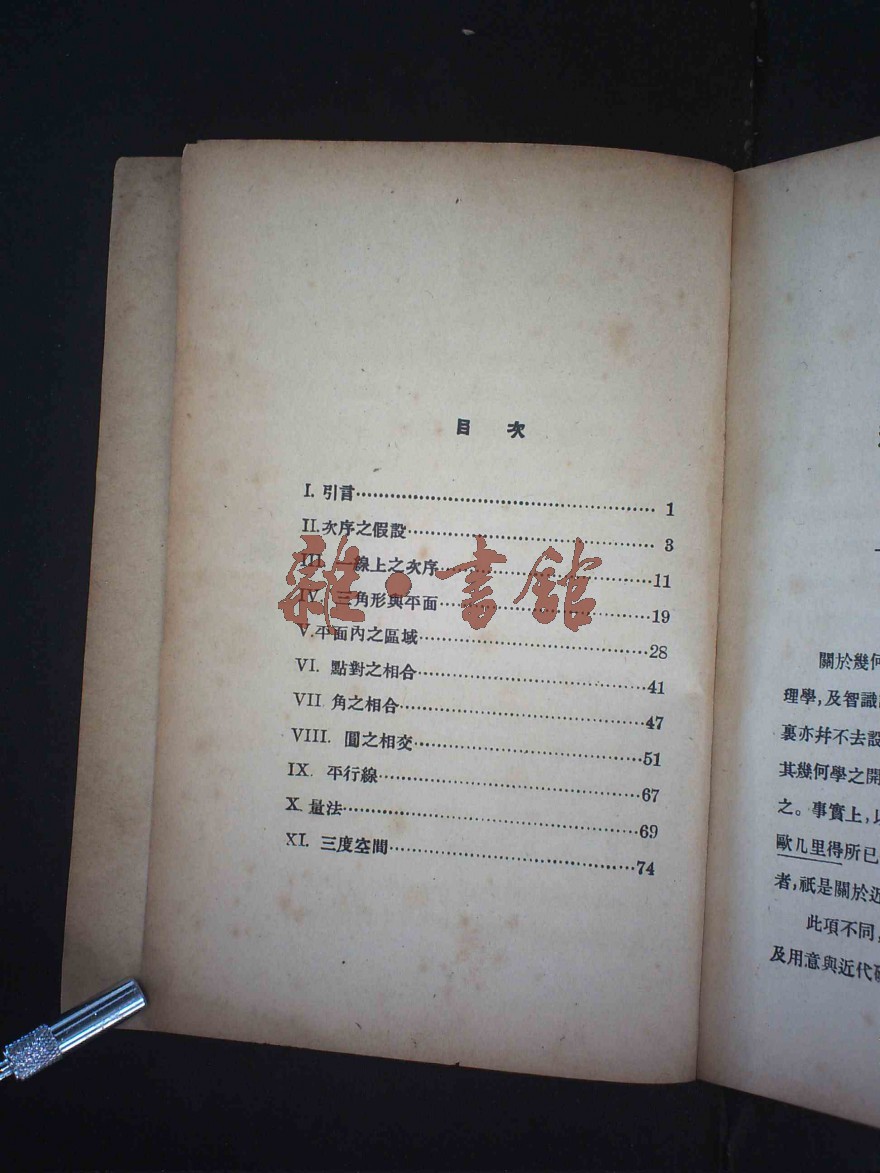 目 次
I. 引言 1
II.次序之假設 3
III. 一線上之次序 11
IV. 三角形與平面 19
V.平面內之區域 28
VI. 點對之相合 41
VII. 角之相合 47
VIII. 圓之相交 51
IX. 平行線 67
X. 量法 69
XI. 三度空間 74
雜·書館
關於幾何
理學,及智識
裏亦幷不去設
其幾何學之開
之。事實上,以
歐几里得所已
者,祇是關於近
此項不同,
及用意與近代